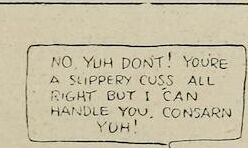 NO, YUH DONT! YOU'RE
A SLIPPERY CUSS ALL
RIGHT BUT I CAN
HANDLE YOU, CONSARN
YUH!